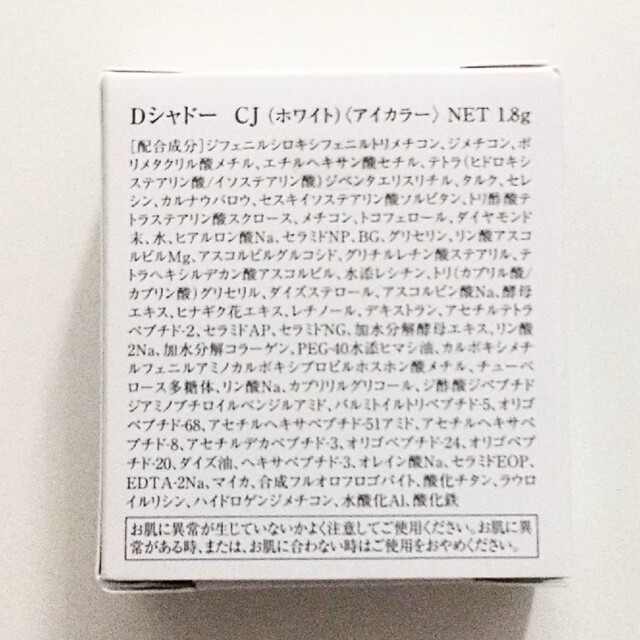 Dシャドー CJ（ホワイト）〈アイカラー〉 NET 1.8g
[配合成分]ジフェニルシロキシフェニルトリメチコン、ジメチコン、ポ
リメタクリル酸メチル、エチルヘキサン酸セチル、テトラ(ヒドロキシ
ステアリン酸/イソステアリン酸)ジペンタエリスリチル、タルク、セレ
シン、カルナウバロウ、セスキイソステアリン酸ソルビタン、トリ酢酸テ
トラステアリン酸スクロース、メチコン、トコフェロール、ダイヤモンド
末、水、ヒアルロン酸Na、セラミドNP、BG、グリセリン、リン酸アスコ
ルビルMg、アスコルビルグルコシド、グリチルレチン酸ステアリル、テ
トラヘキシルデカン酸アスコルビル、水添レシチン、トリ(カプリル酸/
カプリン酸)グリセリル、ダイズステロール、アスコルビン酸Na、酵母
エキス、ヒナギク花エキス、レチノール、デキストラン、アセチルテトラ
ペプチド-2、セラミドAP、セラミドNG、加水分解酵母エキス、リン酸
2Na、加水分解コラーゲン、PEG-40水添ヒマシ油、カルボキシメチ
ルフェニルアミノカルボキシプロピルホスホン酸メチル、チューベ
ロース多糖体、リン酸Na、カプリリルグリコール、ジ酢酸ジペプチド
ジアミノブチロイルベンジルアミド、パルミトイルトリペプチド-5、オリゴ
ペプチド-68、アセチルヘキサペプチド-51アミド、アセチルヘキサペ
プチド-8、アセチルデカペプチド-3、オリゴペプチド-24、オリゴペプ
チド-20、ダイズ油、ヘキサペプチド-3、オレイン酸Na、セラミドEOP、
EDTA-2Na、マイカ、合成フルオロフロゴパイト、酸化チタン、ラウロ
イルリシン、ハイドロゲンジメチコン、水酸化Al、酸化鉄
お肌に異常が生じていないかよく注意してご使用ください。お肌に異
常がある時、または、お肌に合わない時はご使用をおやめください。